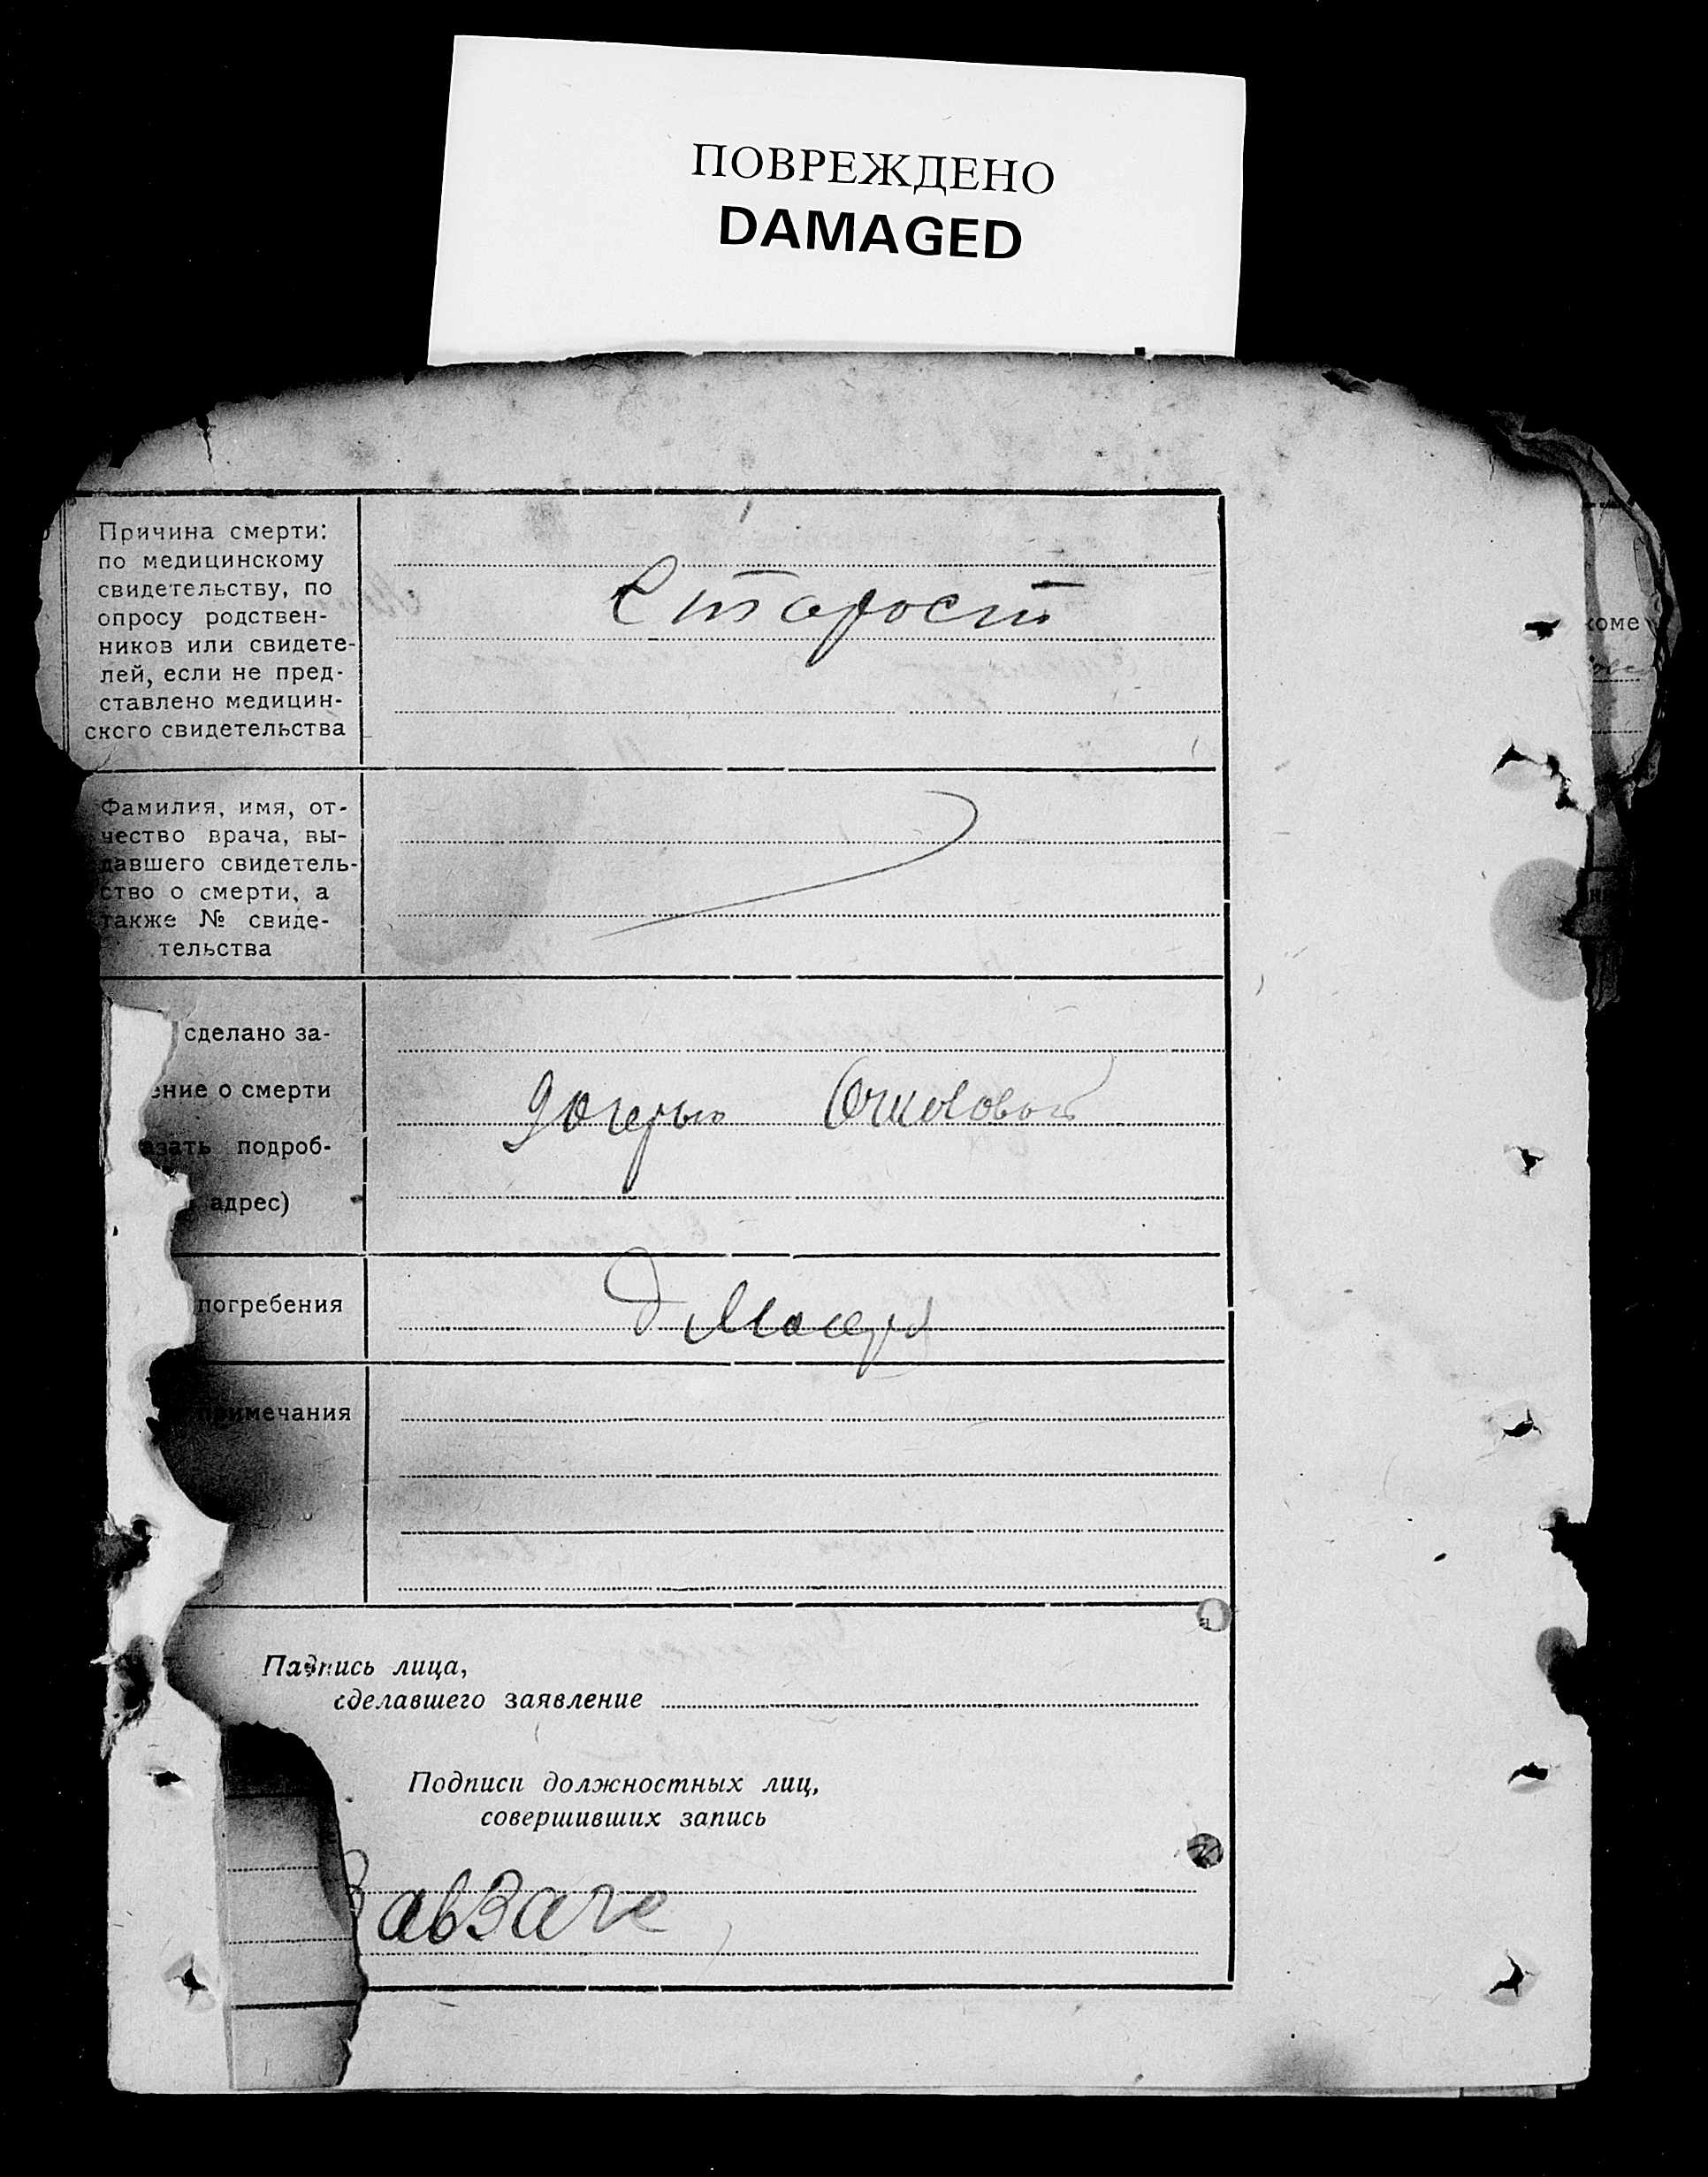 ПОВРЕЖДЕНО
DAMAGED
Причина смерти:
по медицинскому
свидетельству, по
опросу родствен-
ников или свидете-
лей, если не пред-
ставлено медицин-
ского свидетельства
Старост
коме
Фамилия, имя, от-
чество врача, вы-
давшего свидетель-
ство о смерти, а
также № свиде-
тельства
сделано за-
ение о смерти
азать подроб-
адрес)
дочерью
погребения
д
примечания
Подпись лица,
сделавшего заявление
Подписи должностных лиц,
совершивших запись